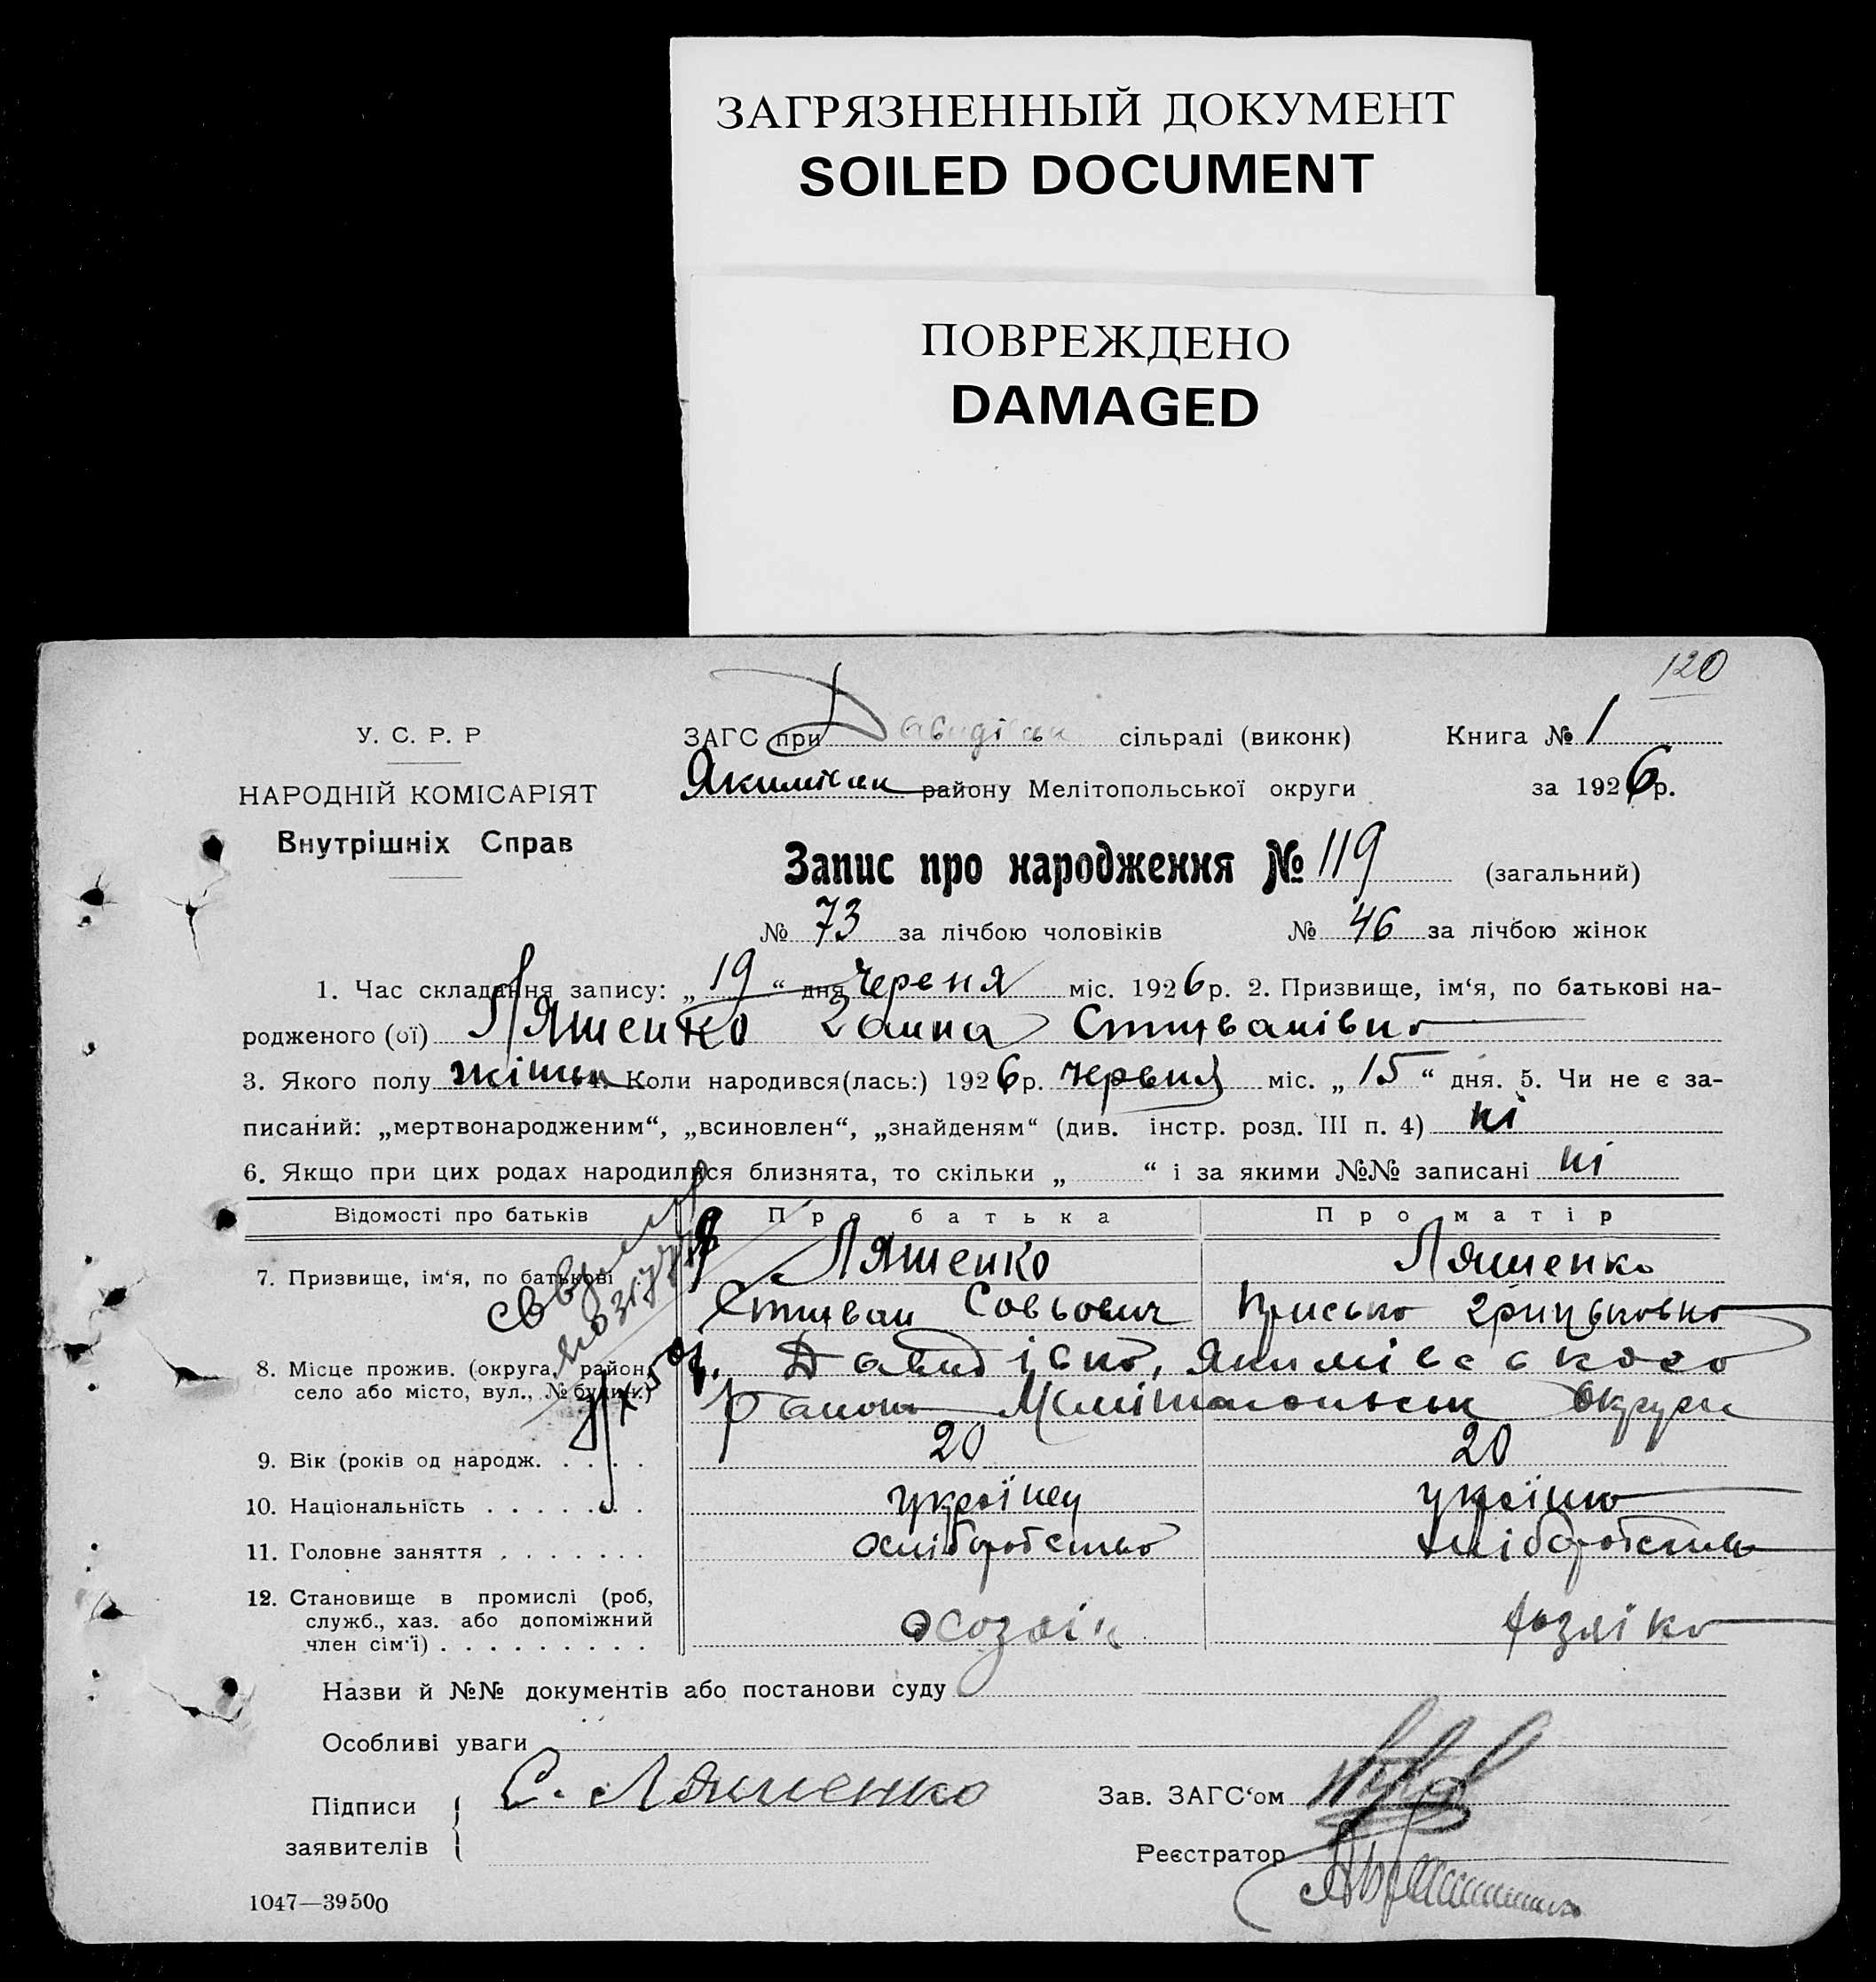 ЗАГРЯЗНЕННЫЙ ДОКУМЕНТ
SOILED DOCUMENT
ПОВРЕЖДЕНО
DAMAGED
120
У. С. Р. Р
НАРОДНІЙ КОМІСАРІЯТ
Внутрішніх Справ
ЗАГС при Давидівськ сільраді (виконк) Книга № 1
Якимівськ району Мелітопольської округи за 1926 р.
Запис про народження № 119 (загальний)
№ 73 за лічбою чоловіків № 46 за лічбою жінок
1. Час складання запису: „ 19 “ дня Червня міс. 1926 р. 2. Призвище, ім‘я, по батькові на-
родженого (ої) Ляшенко Ганна Степанівна
3. Якого полу жіночь 4. Коли народився(лась:) 1926 р. червня міс. „ 15 “ дня. 5. Чи не є за-
писаний: „мертвонародженим“, „всиновлен“, „знайденям“ (див. інстр. розд. III п. 4) ні
6. Якщо при цих родах народилися близнята, то скільки „ “ і за якими №№ записані ні
Відомості про батьків Про батька Про матір
7. Призвище, ім‘я, по батькові Ляшенко Ляшенко
Степан Савович Грицьковна
8. Місце прожив. (округа, район, с. Давидівка, Якимівського
село або місто, вул., № будин.) району Мелітопольськ округи
9. Вік (років од народж. . . . . 20 20
10. Національність . . . . . . . українец украінка
11. Головне заняття . . . . . . . хліборобство хліборобство
12. Становище в промислі (роб,
служб., хаз. або допоміжний хозяін хозяіка
член сім‘ї) . . . . . . . . .
Назви й №№ документів або постанови суду
Особливі уваги
Підписи С. Ляшенко Зав. ЗАГС‘ом
заявителів Реєстратор
1047—39500